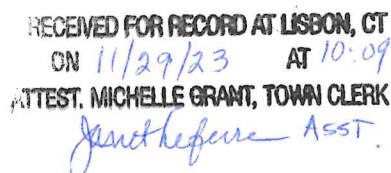 RECEIVED FOR RECORD AT LISBON, CT
ON 11/29/23 AT 10:09
ATTEST. MICHELLE GRANT, TOWN CLERK
Janet Lefevre ASST.